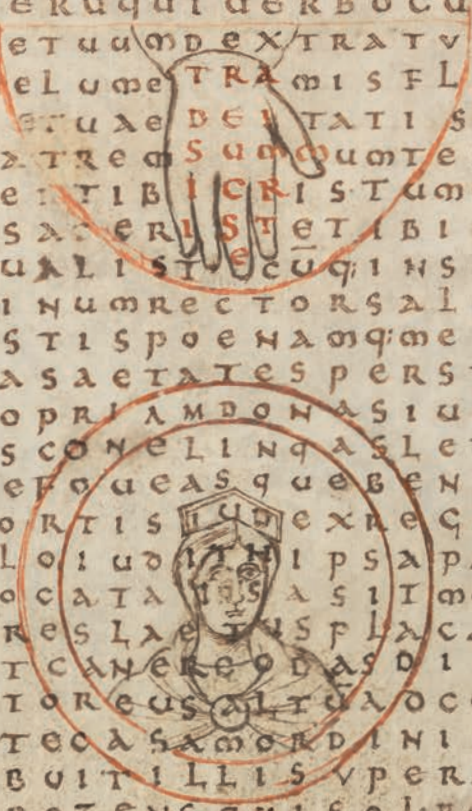 ERUQUIUERBOCU
ETUUMDEXTRATV
ELUMETRAMISFL
ETUAEDEITATIS
ATREMSUMMUMTE
EITIBICRISTUM
SATERISTETIBI
UALISTECŪQ;INS
INUMRECTORSAL
STISPOENAMQ;ME
ASAETATESPERS
OPRIAMDONASIU
SCONELINQASLE
EFOUEASQUEBEN
ORTISIUDEXREG
LOIUDITHIPSAP
OCATAIUSASITM
RESLAETUSPLAC
TCANEREODASDI
TOREUSALTŪADC
TECASAMORDINI
BUITILLISVPER